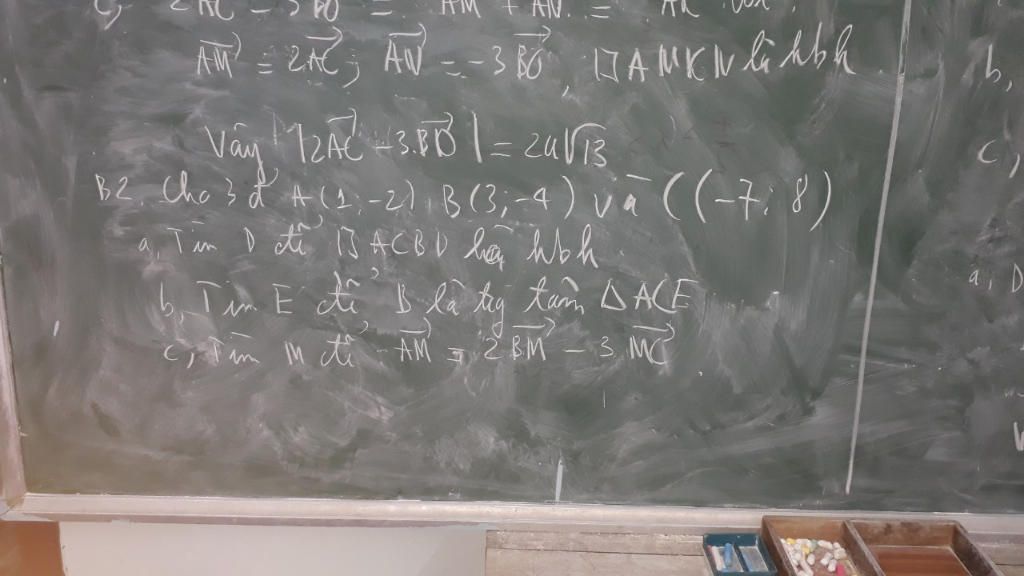 c, 2AC - 3BO = AM + AN. = AK
AM = 2AC; AN = -3BO, ▱AMKN là hbh
Vậy |2AC - 3.BO| = 2a√13
B2. Cho 3đ A(1;-2), B(3;-4) và C(-7;8)
a, Tìm D để ▱ACBD là hbh
b, Tìm E để B là trg tâm △ACE
c, Tìm M để -AM = 2BM - 3MC
b,
c,
a, D